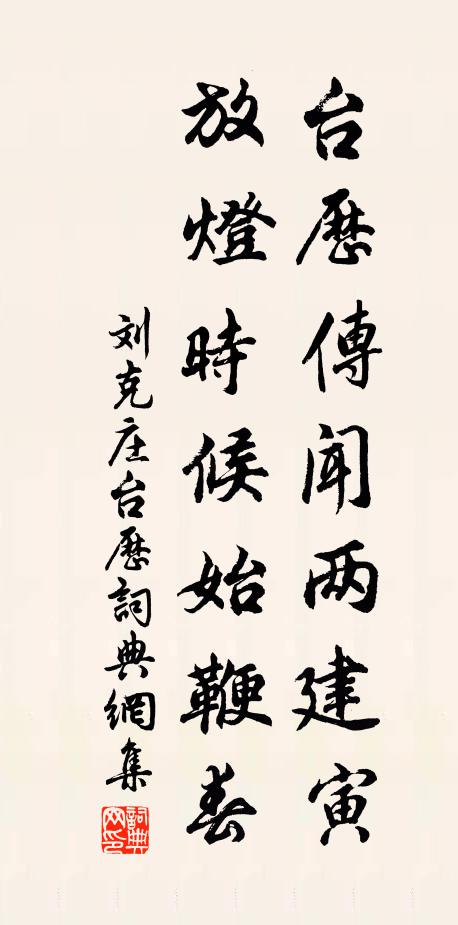 台歷傳闻两建寅
放燈時候始鞭春
刘克庄台歷詞典網集
詞典网印